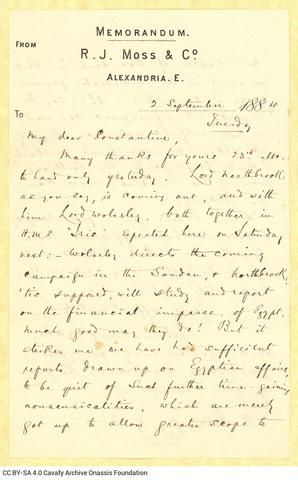 MEMORANDUM.
FROM
R. J. MOSS & Co.
ALEXANDRIA. E.
2 September 1884
Tuesday
TO
My dear Constantine,
Many thanks for yours 25th Ulto.
to hand only yesterday. Lord Northbrook,
as you say, is coming out, and with
him Lord Wolseley, both together in
H.M.S "Iris" expected here on Saturday
next:— Wolseley directs the coming
campaign in the Soudan, & Northbrook,
'tis supposed, will study and report
on the financial impasse, of Egypt.
Much good may they do! But it
strikes me we have had sufficient
reports drawn up on Egyptian affairs,
to be quit of such further time-gaining
nonsensicalities, which are merely
got up to allow greater scope to
CC BY-SA 4.0 Cavafy Archive Onassis Foundation